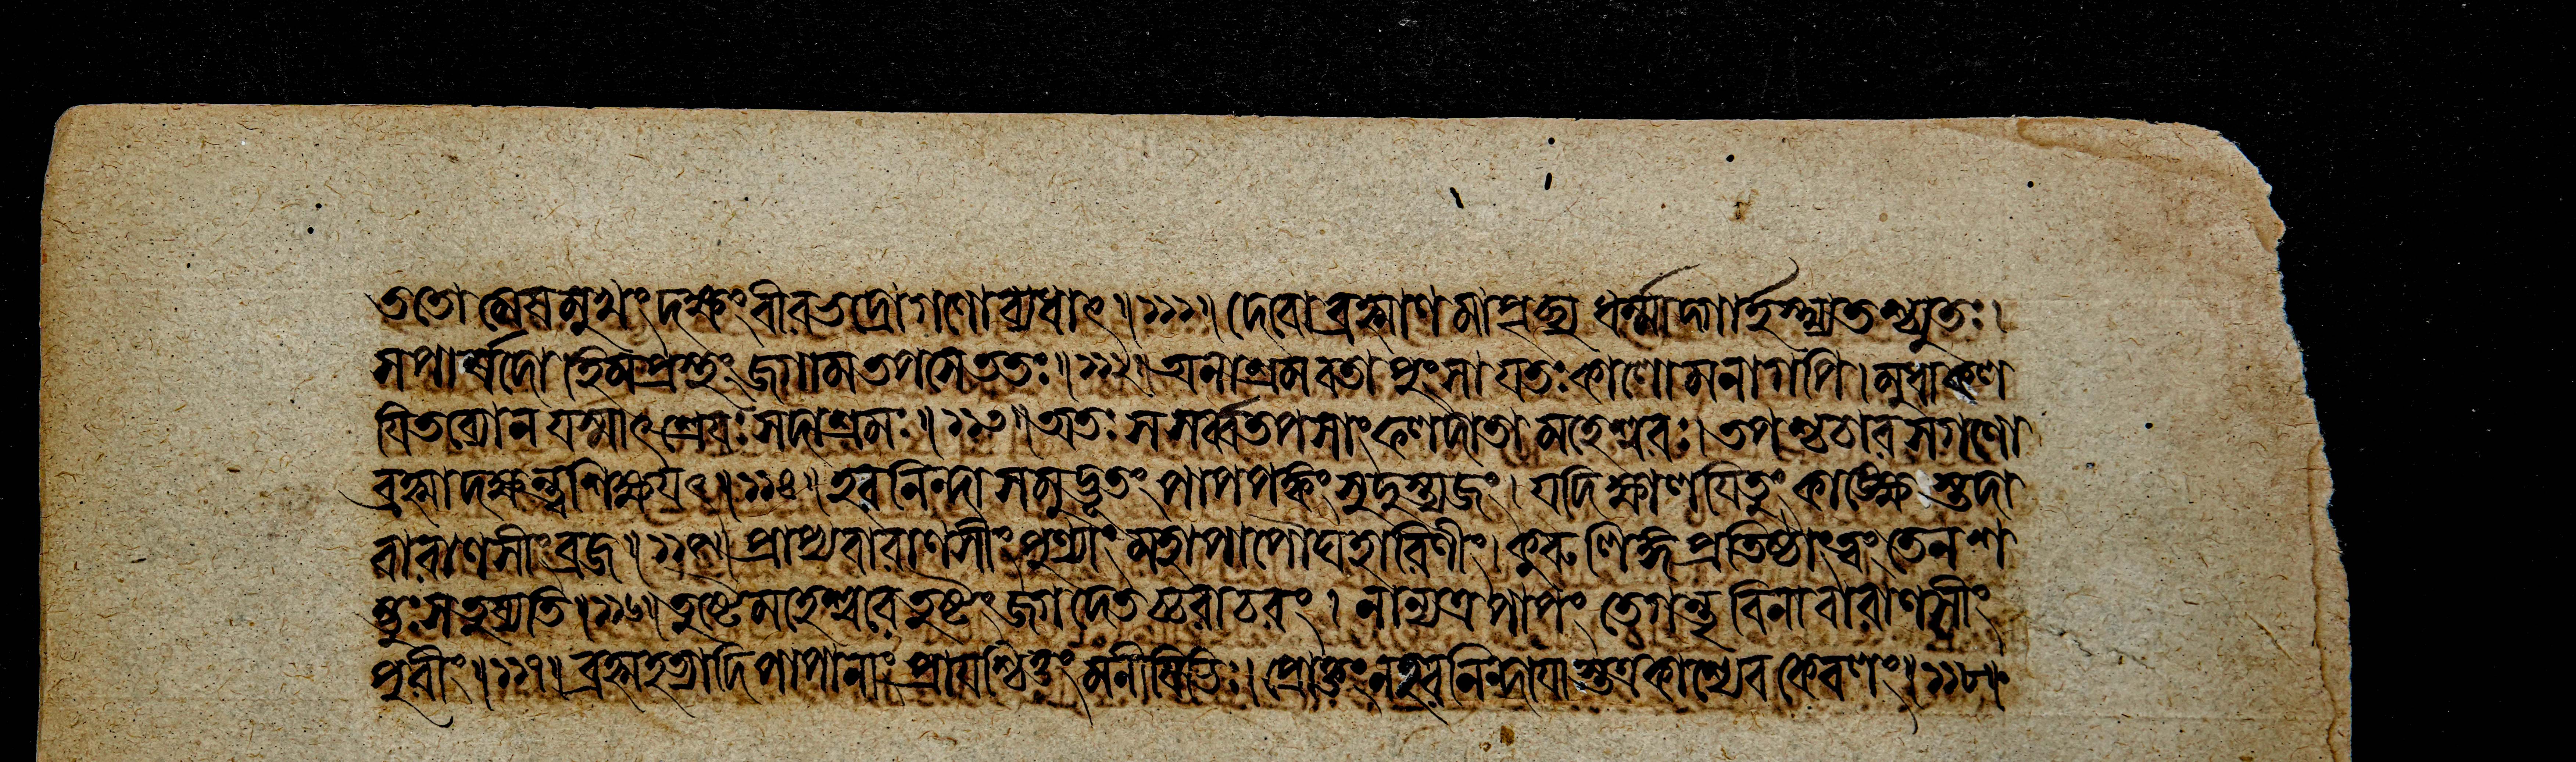 ততো মেষমুখং দক্ষং বীরভদ্রো গণো ব্যধাৎ॥১১১॥ দেবো ব্রহ্মাণমাপৃচ্ছ্য ধর্ম্ম্যাদ্গার্হস্থ্যতশ্চ্যুতঃ।
সপার্ষদো হিমপ্রস্থং জগাম তপসে ততঃ॥১১২॥ অনাশ্রমবতা পুংসা যতঃ কালো মনাগপি। মুধা কল
যিতব্যো ন যস্মাৎ শ্রেয়ঃ সদাশ্রমঃ॥১১৩॥ অতঃ স সর্ব্বতপসাং ফলদাতা মহেশ্বরঃ। তপশ্চচার সগণো
ব্রহ্মা দক্ষন্ত্বশিক্ষয়ৎ॥১১৪॥ হরনিন্দাসমুদ্ভূতং পাপপঙ্কং সুদুস্ত্যজং। যদি ক্ষালয়িতুং কাঙ্ক্ষেস্তদা
বারাণসীং ব্রজ॥১১৫॥ প্রাপ্য বারাণসীং পুণ্যাং মহাপাপৌঘহারিণীং। কুরু লিঙ্গপ্রতিষ্ঠাং ত্বং তেন শ
ম্ভুঃ স তুষ্যতি॥১১৬॥ তুষ্টে মহেশ্বরে তুষ্টং জগদেতচ্চরাচরং। নান্যত্র পাপং তে গন্তৃ বিনা বারাণসীং
পুরীং॥১১৭॥ ব্রহ্মহত্যাদিপাপানাং প্রায়শ্চিত্তং মনীষিভিঃ। প্রোক্তং ন হরনিন্দায়াস্তত্র কাশ্যেব কেবলং॥১১৮॥